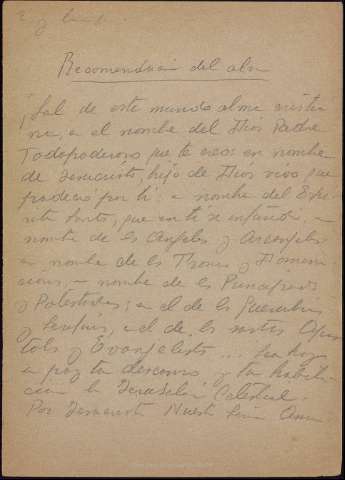 Recomendación del alma
¡Sal de este mundo alma cristia
na, en el nombre del Dios Padre
Todopoderoso que te creó: en nombre
de Jesucristo, hijo de Dios vivo que
padeció por ti: en nombre del Espí
ritu Santo, que en ti se infundió, en
nombre de los Angeles y Arcangeles
en nombre de los Tronos y Domina
ciones, en nombre de los Principados
y Potestades; en el de los Querubines
y Serafines, en el de los santos Após
toles y Evangelistas ... sea hoy
en paz tu descanso y tu habita
ción la Jerusalén Celestial.
Por Jesucristo Nuestro Señor Amen